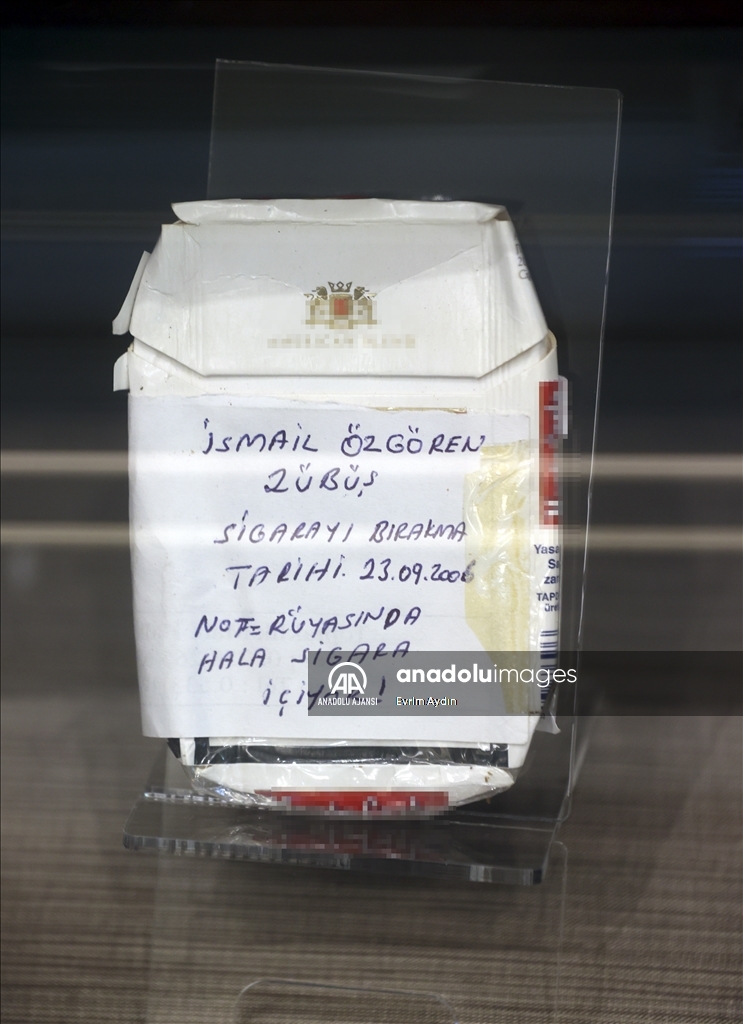 İSMAİL ÖZGÖREN
ZÜBÜŞ
SİGARAYI BIRAKMA
TARİHİ. 23.09.2006
NOT= RÜYASINDA
HALA SİGARA
İÇİYOR!
Yasa
Sa
zar
TAPD
üre
AA
ANADOLU AJANSI
anadoluimages
Evrim Aydın